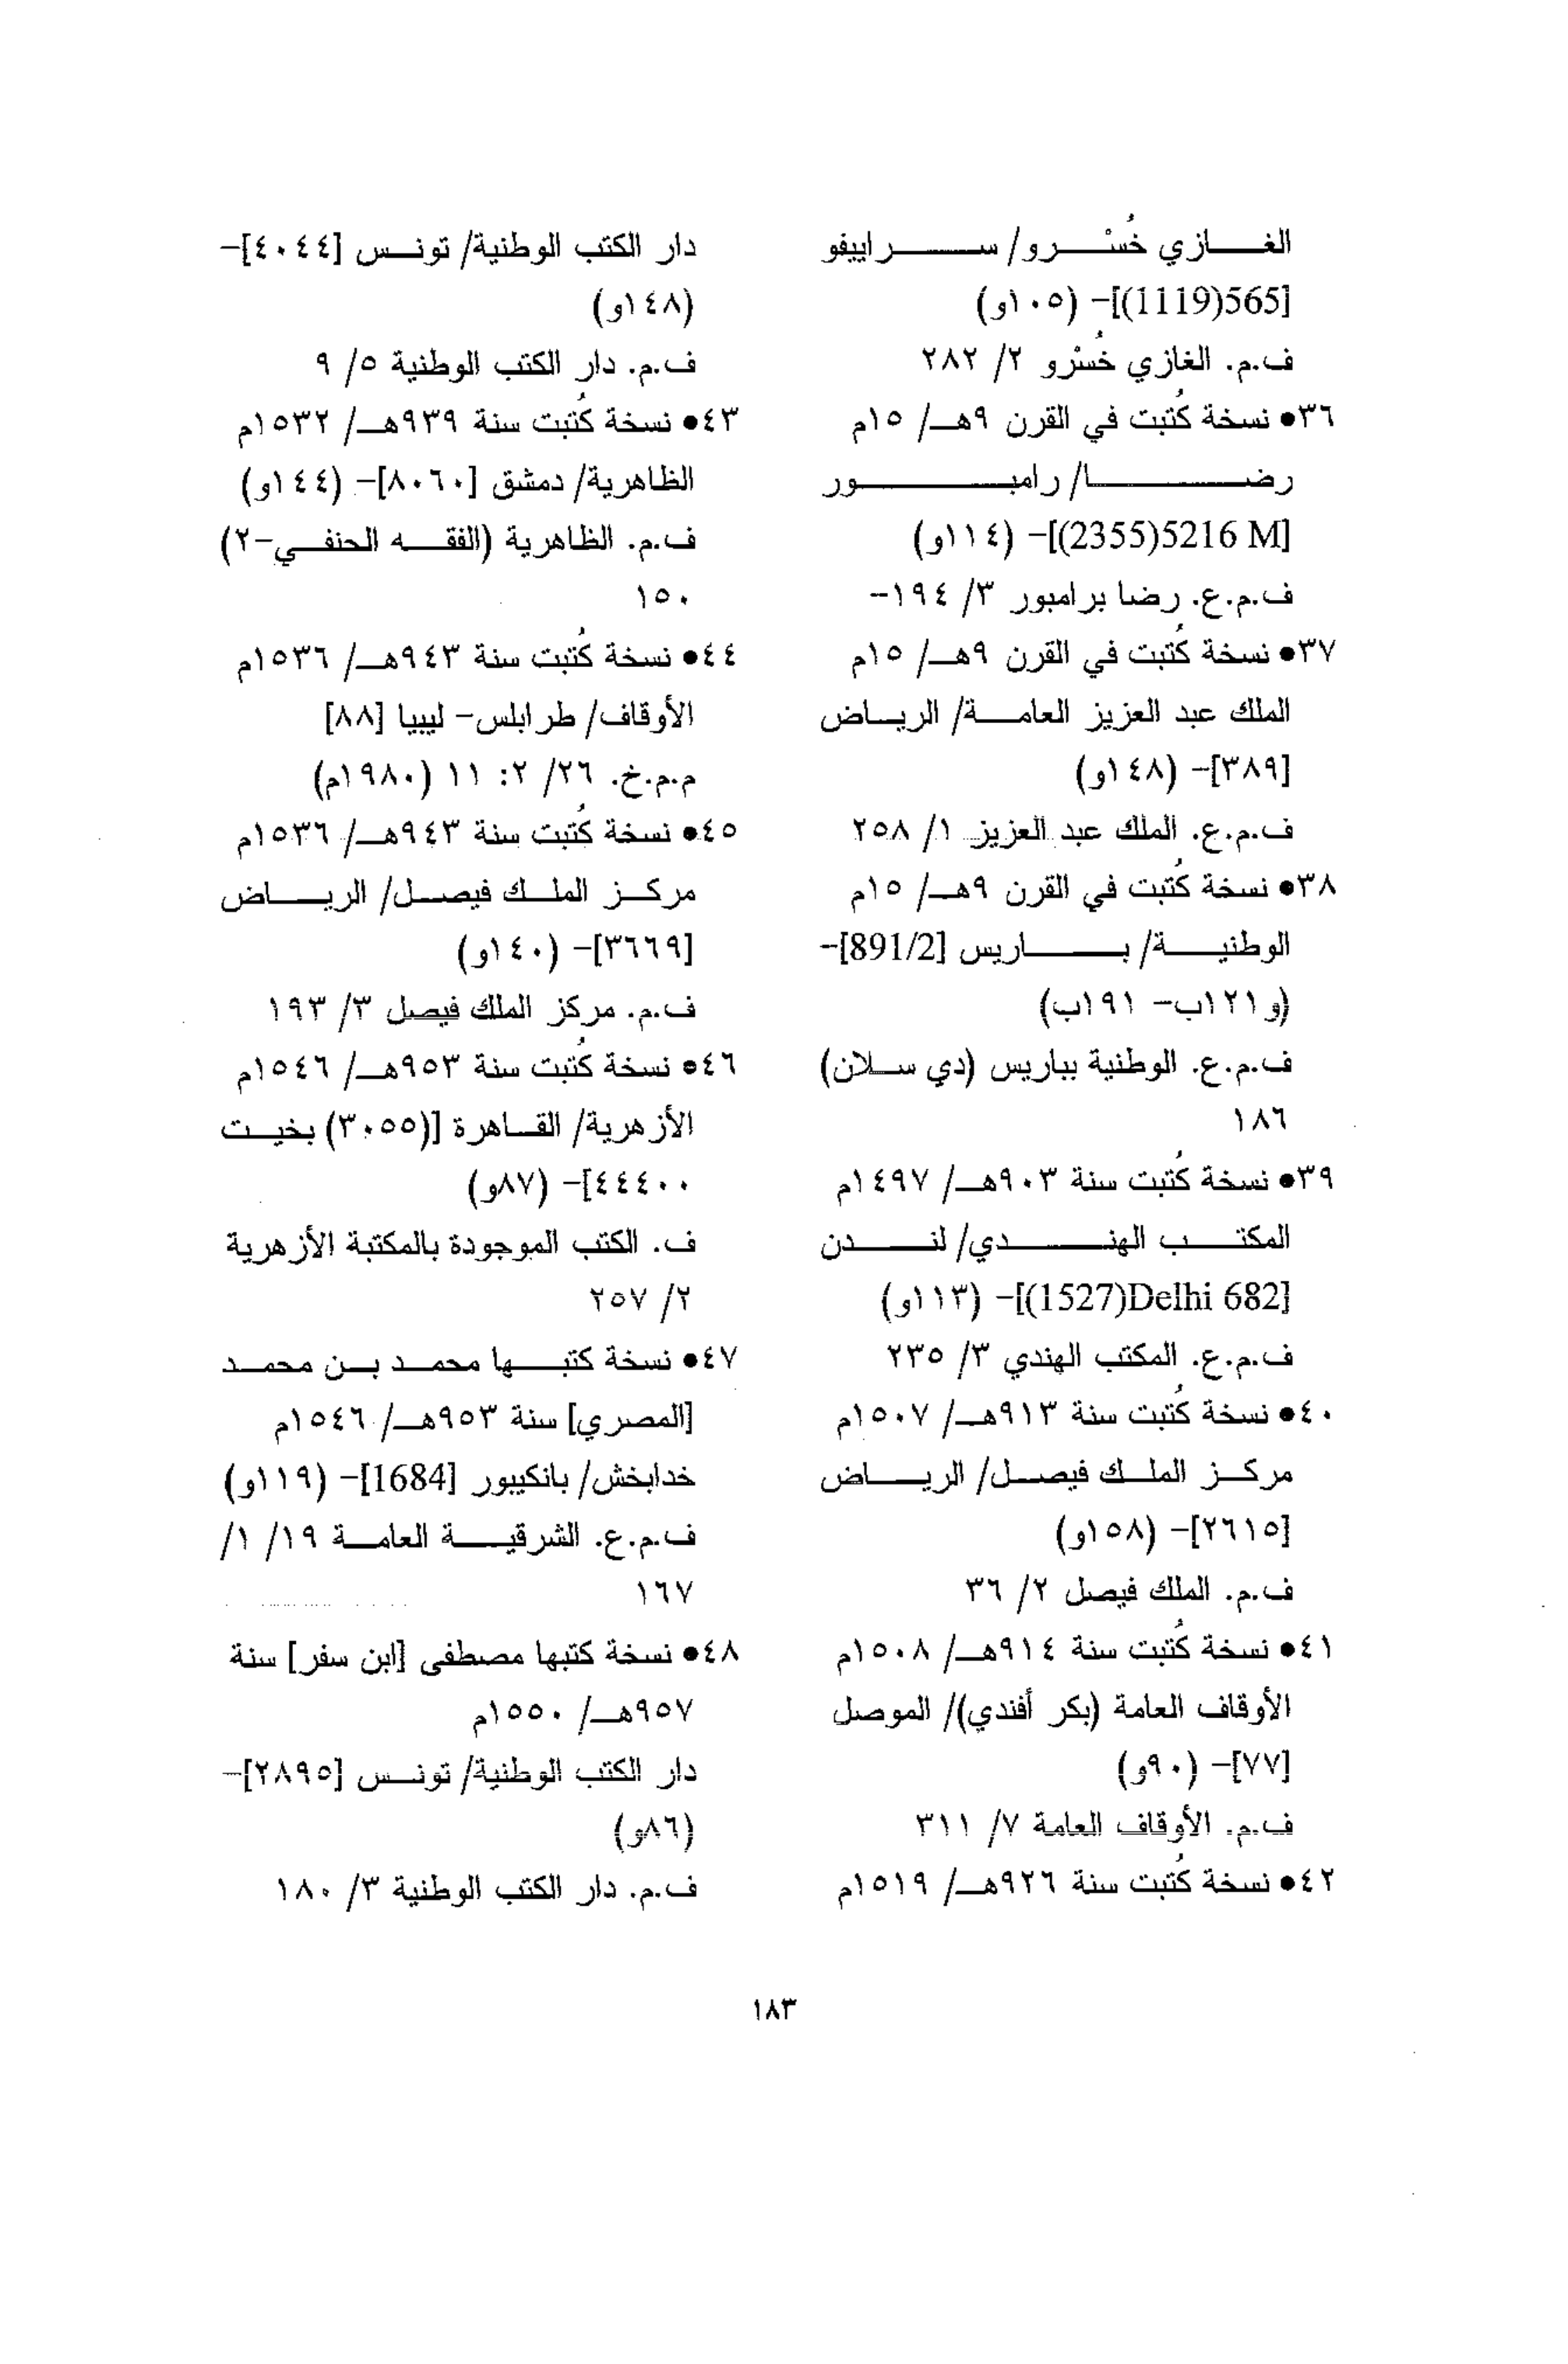 الغازي خُسْرو/ سراييفو
[565(1119)]- (١٠٥و)
ف.م. الغازي خُسْرو ٢/ ٢٨٢
٣٦• نسخة كُتبت في القرن ٩هـ/ ١٥م
رضا/ رامبور
[5216 M(2355)]- (١١٤و)
ف.م.ع. رضا برامبور ٣/ ١٩٤-
٣٧• نسخة كُتبت في القرن ٩هـ/ ١٥م
الملك عبد العزيز العامة/ الرياض
[٣٨٩]- (١٤٨و)
ف.م.ع. الملك عبد العزيز ١/ ٢٥٨
٣٨• نسخة كُتبت في القرن ٩هـ/ ١٥م
الوطنية/ باريس [891/2]-
(و١٢١ب- ١٩١ب)
ف.م.ع. الوطنية بباريس (دي سلان)
١٨٦
٣٩• نسخة كُتبت سنة ٩٠٣هـ/ ١٤٩٧م
المكتب الهندي/ لندن
[Delhi 682(1527)]- (١١٣و)
ف.م.ع. المكتب الهندي ٣/ ٢٣٥
٤٠• نسخة كُتبت سنة ٩١٣هـ/ ١٥٠٧م
مركز الملك فيصل/ الرياض
[٢٦١٥]- (١٥٨و)
ف.م. الملك فيصل ٢/ ٣٦
٤١• نسخة كُتبت سنة ٩١٤هـ/ ١٥٠٨م
الأوقاف العامة (بكر أفندي)/ الموصل
[٧٧]- (٩٠و)
ف.م. الأوقاف العامة ٧/ ٣١١
٤٢• نسخة كُتبت سنة ٩٢٦هـ/ ١٥١٩م
دار الكتب الوطنية/ تونس [٤٠٤٤]-
(١٤٨و)
ف.م. دار الكتب الوطنية ٥/ ٩
٤٣• نسخة كُتبت سنة ٩٣٩هـ/ ١٥٣٢م
الظاهرية/ دمشق [٨٠٦٠]- (١٤٤و)
ف.م. الظاهرية (الفقه الحنفي-٢)
١٥٠
٤٤• نسخة كُتبت سنة ٩٤٣هـ/ ١٥٣٦م
الأوقاف/ طرابلس- ليبيا [٨٨]
م.م.خ. ٢٦/ ٢: ١١ (١٩٨٠م)
٤٥• نسخة كُتبت سنة ٩٤٣هـ/ ١٥٣٦م
مركز الملك فيصل/ الرياض
[٣٦٦٩]- (١٤٠و)
ف.م. مركز الملك فيصل ٣/ ١٩٣
٤٦• نسخة كُتبت سنة ٩٥٣هـ/ ١٥٤٦م
الأزهرية/ القاهرة [(٣٠٥٥) بخيت
٤٤٤٠٠]- (٨٧و)
ف. الكتب الموجودة بالمكتبة الأزهرية
٢/ ٢٥٧
٤٧• نسخة كتبها محمد بن محمد
[المصري] سنة ٩٥٣هـ/ ١٥٤٦م
خدابخش/ بانكيبور [1684]- (١١٩و)
ف.م.ع. الشرقية العامة ١٩/ ١/
١٦٧
٤٨• نسخة كتبها مصطفى [ابن سفر] سنة
٩٥٧هـ/ ١٥٥٠م
دار الكتب الوطنية/ تونس [٢٨٩٥]-
(٨٦و)
ف.م. دار الكتب الوطنية ٣/ ١٨٠
١٨٣